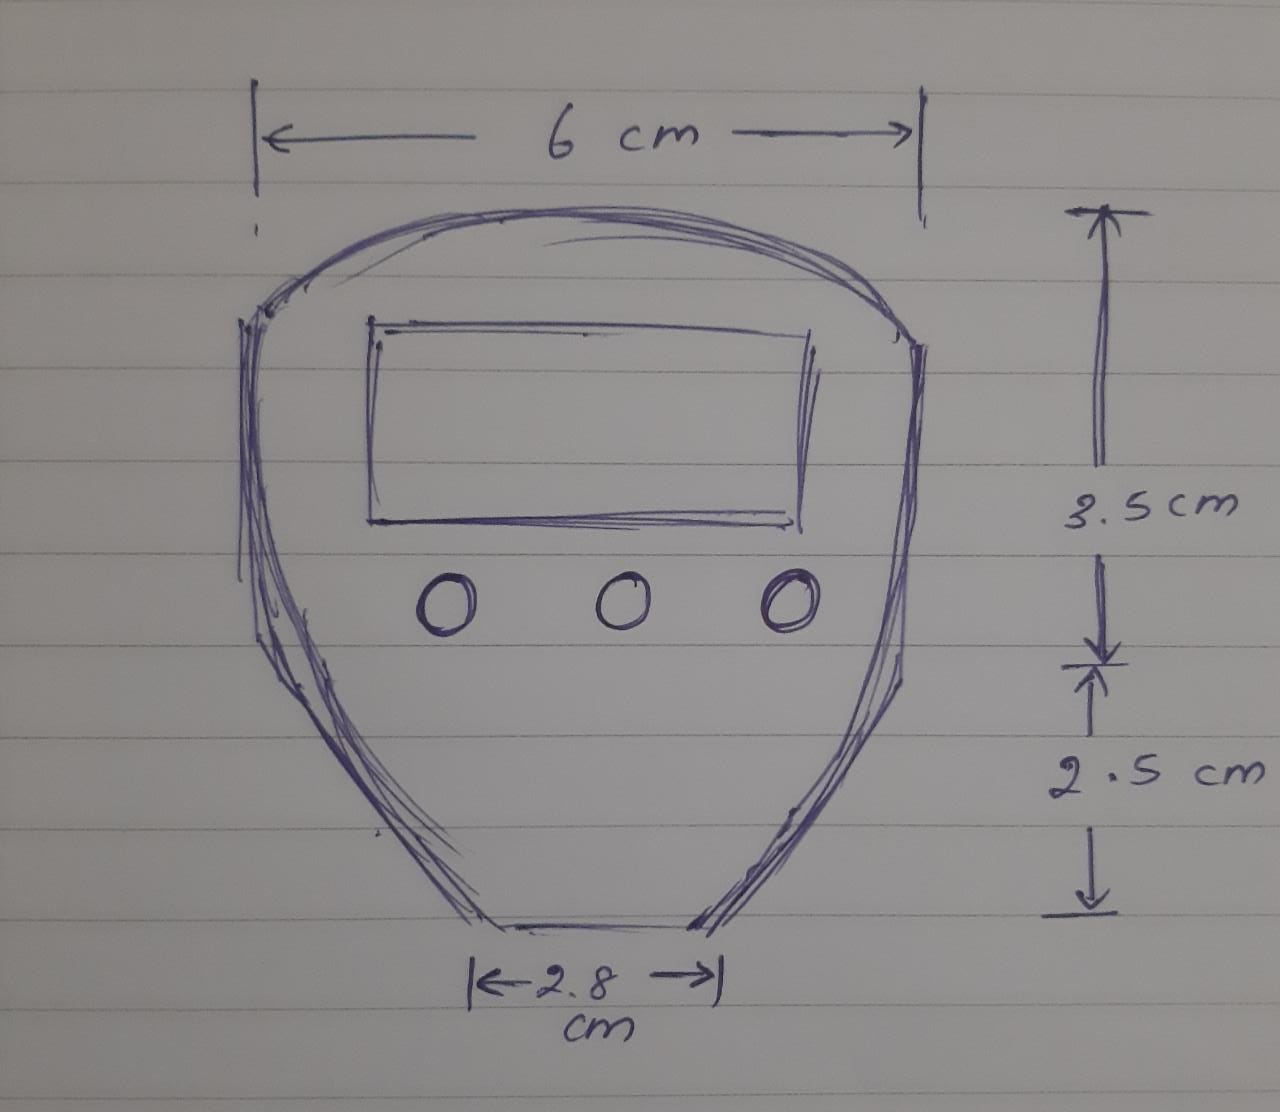 6 cm
3.5 cm
2.5 cm
2.8
cm